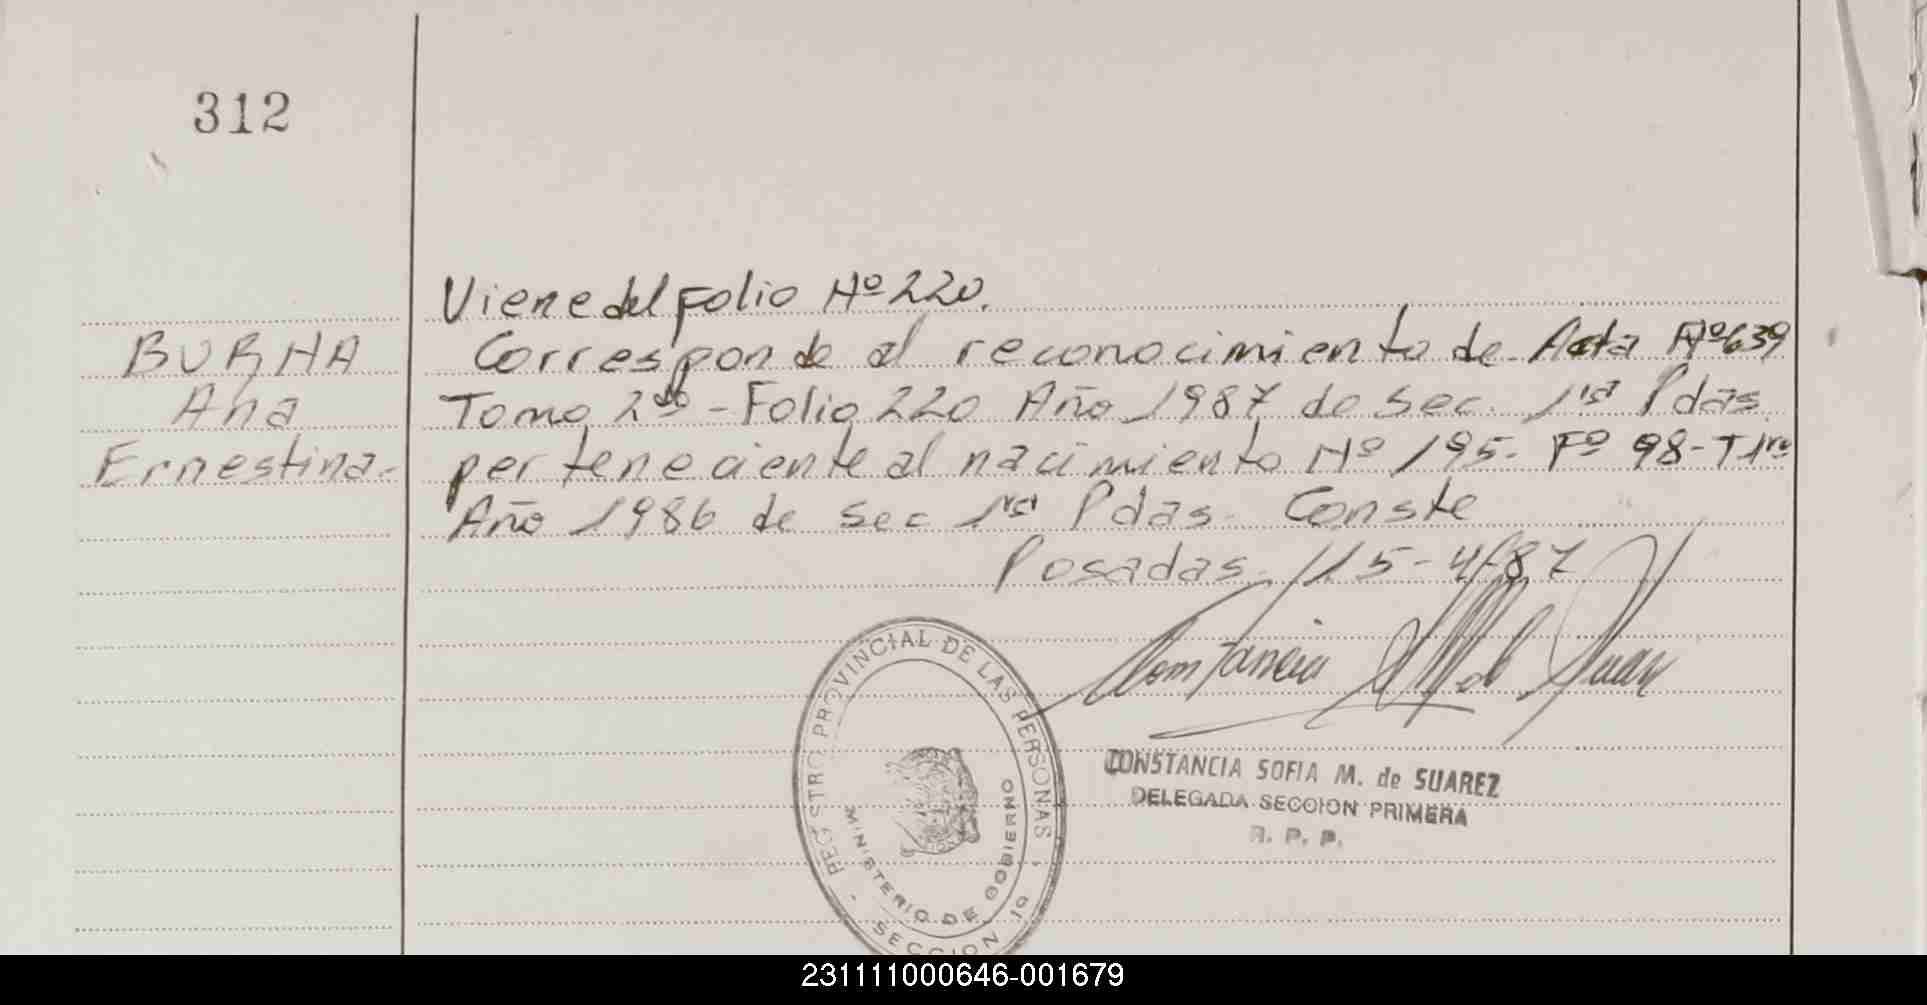 312
Viene del Folio Nº 220.
BURNA
Ana
Ernestina-
Corresponde al reconocimiento de Acta Nº 639
Tomo 2do - Folio 220 Año 1987 de Sec. 1ra Pdas.
perteneciente al nacimiento Nº 195- Fº 98- T 1ro
Año 1986 de Sec 1ra Pdas. Conste
Posadas, 15-4/87
CONSTANCIA SOFIA M. de SUAREZ
DELEGADA SECCION PRIMERA
R. P. P.
REGISTRO PROVINCIAL DE LAS PERSONAS
MINISTERIO DE GOBIERNO
SECCION 1º
231111000646-001679